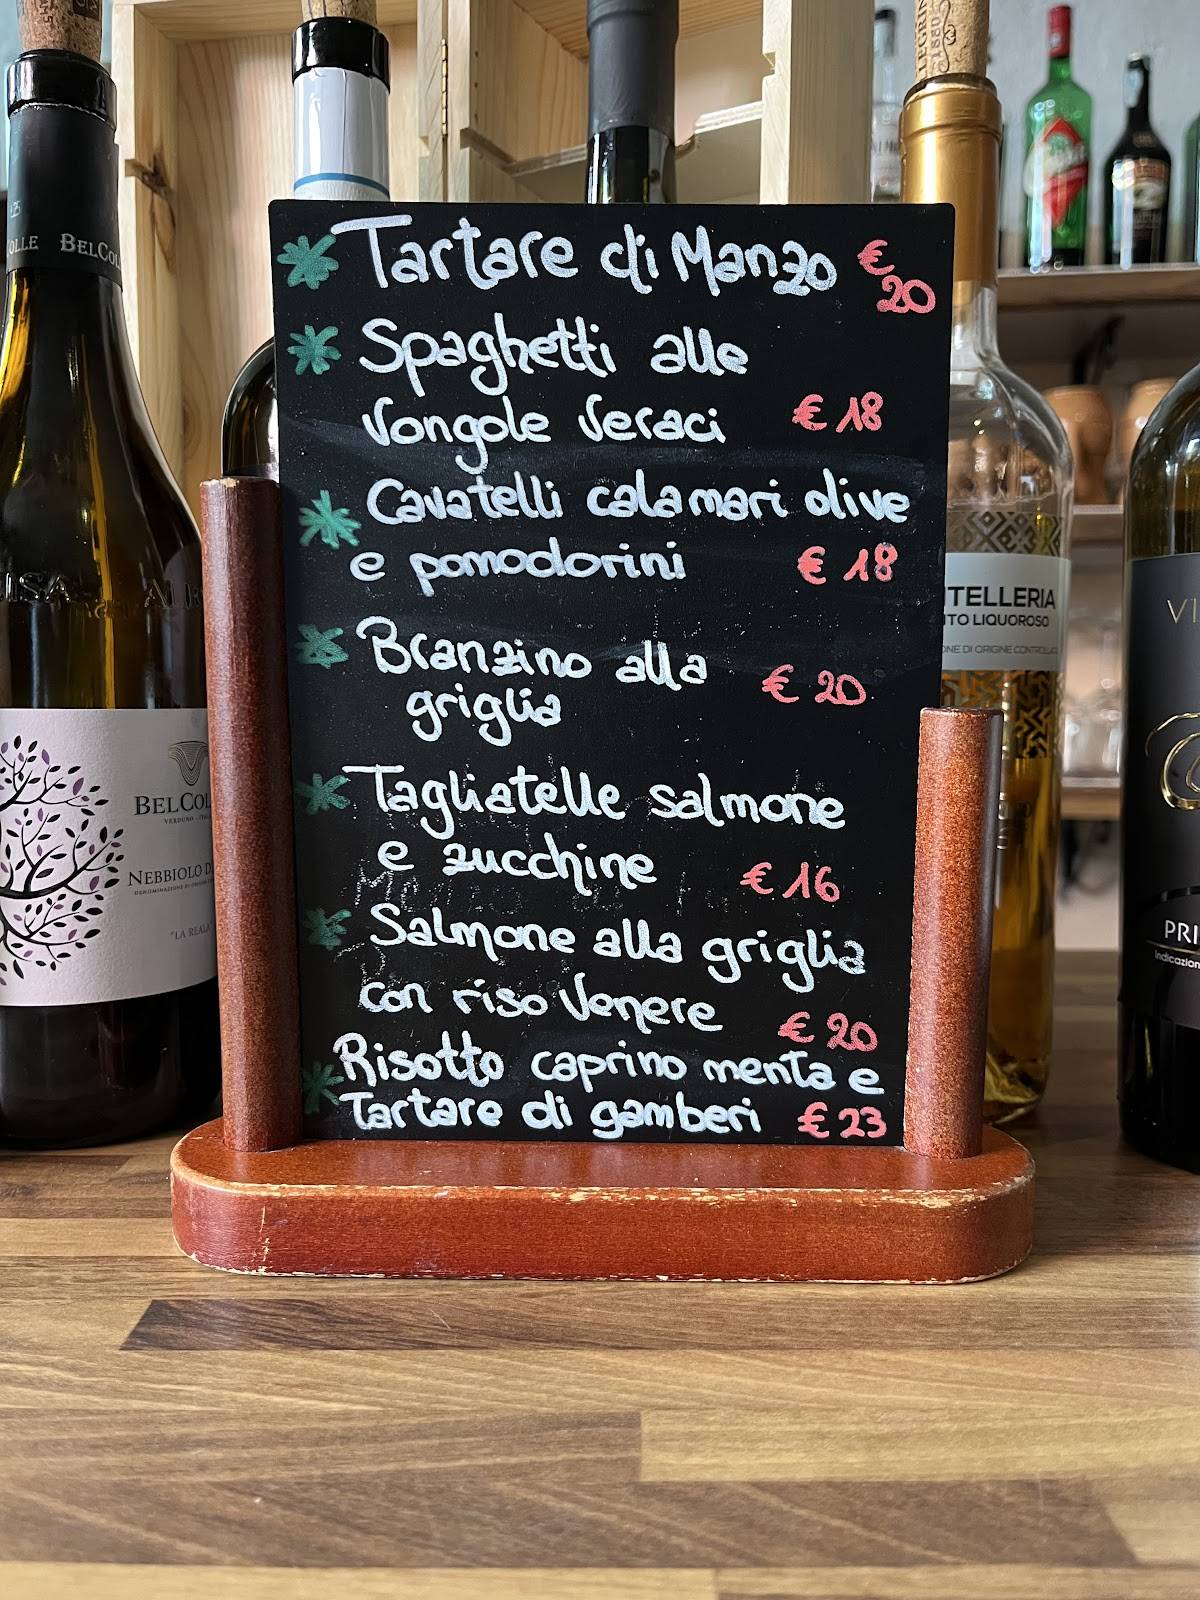 Tartare di Manzo €
20
Spaghetti alle
vongole veraci € 18
Cavatelli calamari olive
e pomodorini € 18
Branzino alla
griglia € 20
Tagliatelle salmone
e zucchine € 16
Salmone alla griglia
con riso Venere € 20
Risotto caprino menta e
Tartare di gamberi € 23
BELCOLLE
BELCOL
VERDUNO
NEBBIOLO D
"LA REALA
TELLERIA
TO LIQUOROSO
NE DI ORIGINE CONTROLLA
VI
PRI
Indicazion